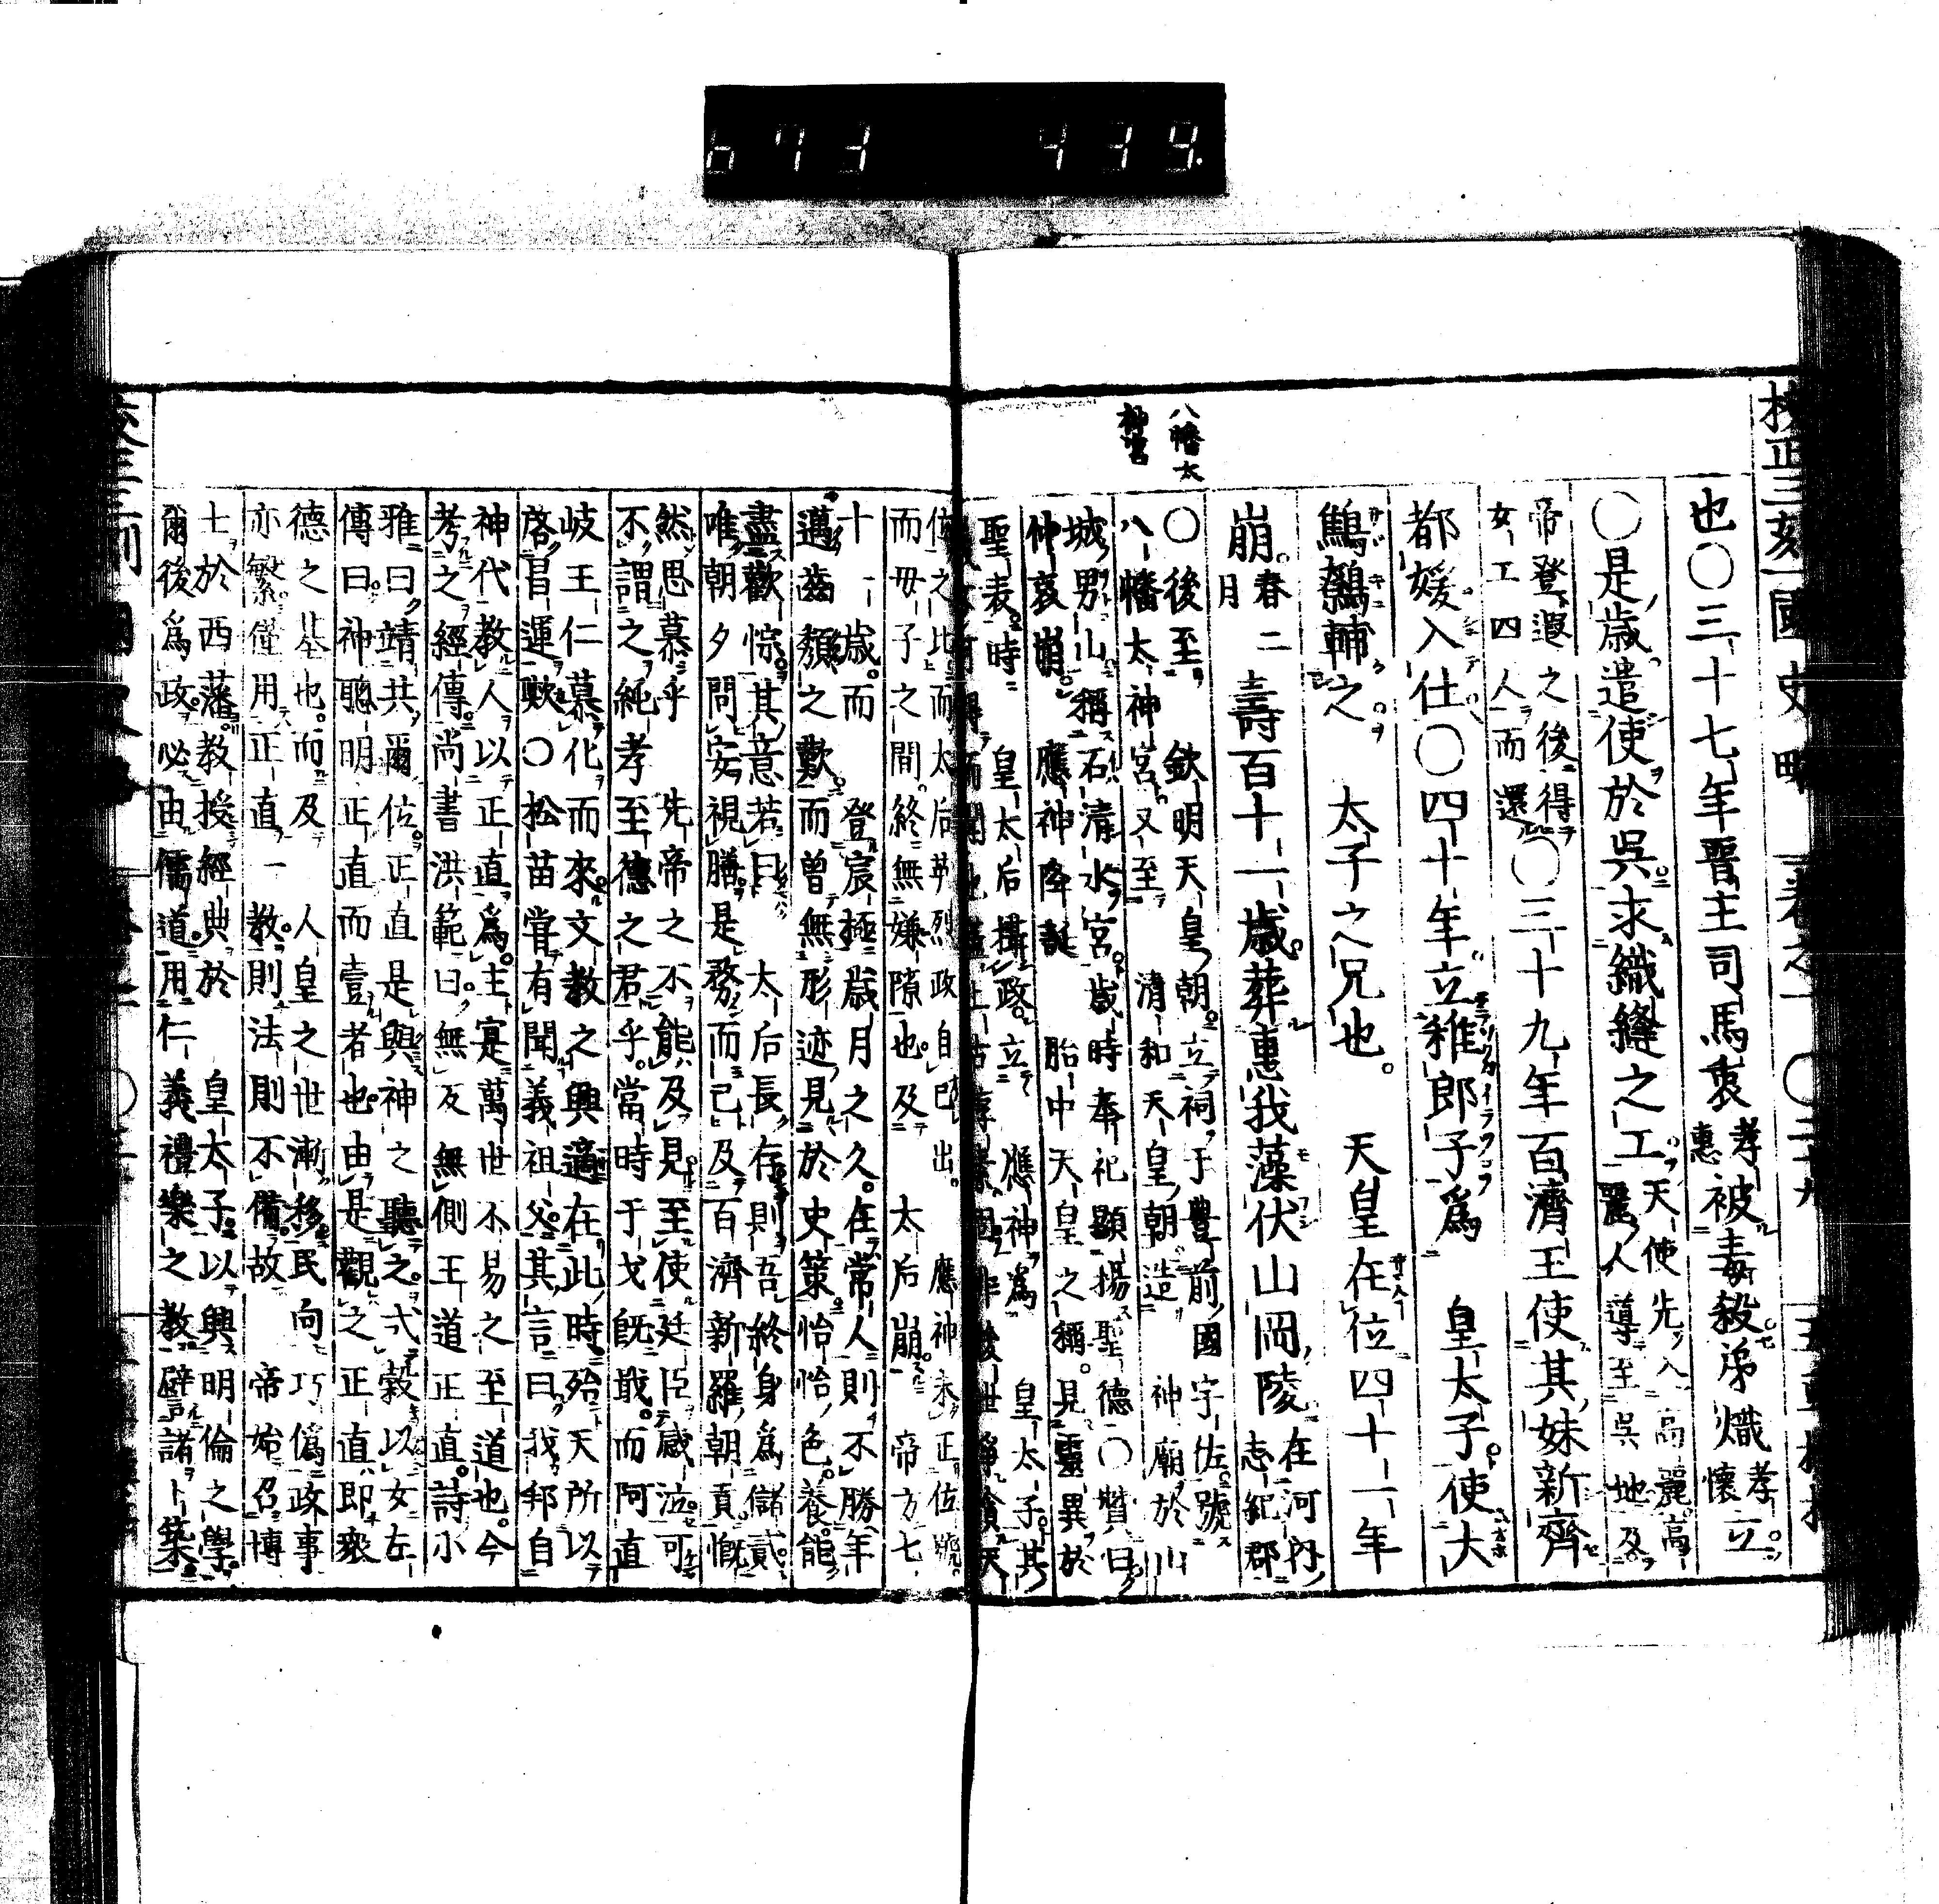 校正三刻國史略 卷之一 ○二十九
也○三十七年晉主司馬衷孝惠被毒殺弟熾孝懷立
○是歲遣使於吳求織縫之工天使先入高麗高麗人導至吳地及
帝登遐之後得女工四人而還○三十九年百濟王使其妹新齊
都媛入仕○四十年立稚郎子爲 皇太子使大
鷦鷯輔之 太子之兄也 天皇在位四十一年
崩春二月壽百十一歲葬惠我藻伏山岡陵在河內志紀郡
八幡太神宮
○後至 欽明天皇朝立祠于豊前國宇佐號
八幡太神宮又至 清和天皇朝造 神廟於山
城男山稱石清水宮歲時奉祀顯揚聖德○贊曰
仲哀崩 應神降誕 胎中天皇之稱見靈異於
聖表時 皇太后攝政立 應神爲 皇太子其
位之比而太后英烈政自己出 應神未正位號
而母子之間終無嫌隙也及 太后崩 帝方七
十一歲而 登宸極歲月之久在常人則不勝年
邁齒頽之歎而曾無形迹見於史策怡怡色養能
盡歡悰其意若曰 太后長存則吾終身爲儲貳
唯朝夕問安視膳是務而已及百濟新羅朝貢慨
然思慕乎 先帝之不能及見至使廷臣感泣可
不謂之純孝至德之君乎當時于戈既戢而阿直
岐王仁慕化而來文教之興適在此時殆天所以
啓昌運歟○松苗嘗有聞義祖父其言曰我邦自
神代教人以正直爲主寔萬世不易之至道也今
考之經傳尚書洪範曰無反無側王道正直詩小
雅曰靖共爾位正直是與神之聽之式穀以女左
傳曰神聰明正直而壹者也由是觀之正直即衆
德之基也而及 人皇之世漸移民向巧僞政事
亦繁僅用正直一教則法則不備故 帝始召博
士於西藩教授經典於 皇太子以興明倫之學
爾後爲政必由儒道用仁義禮樂之教譬諸卜築